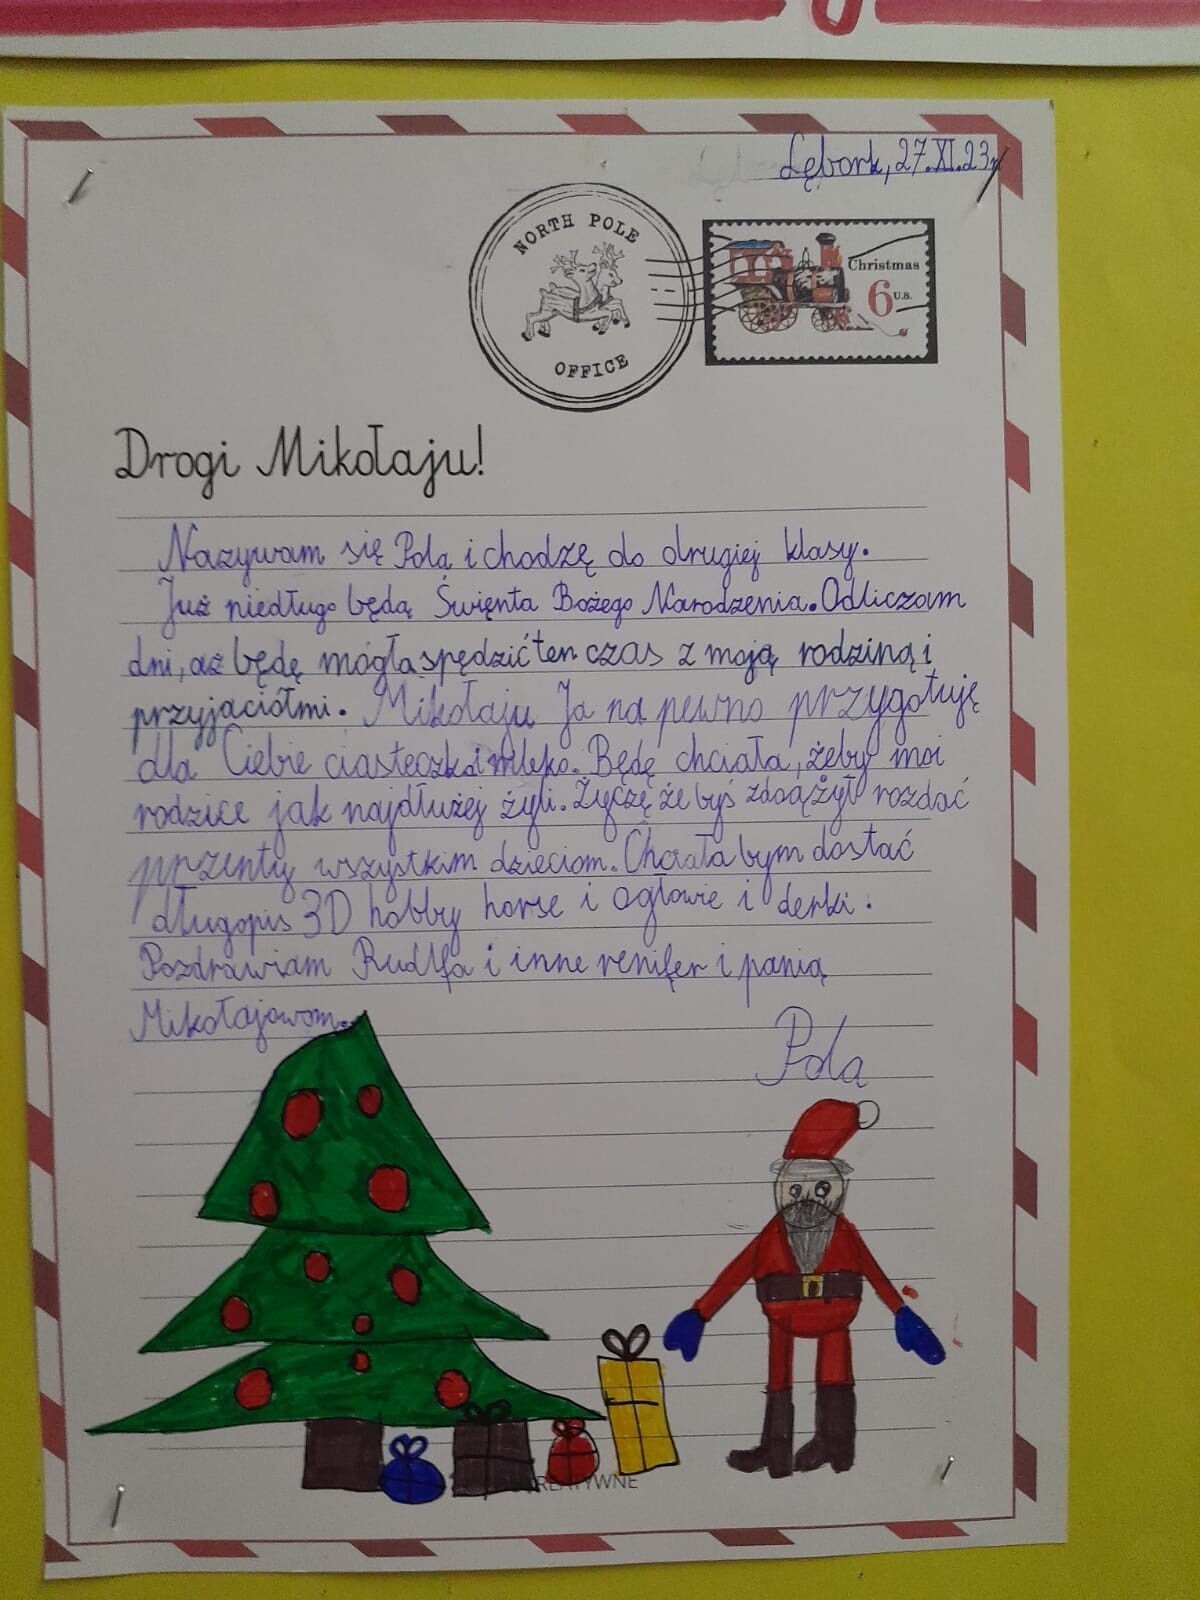 Lębork, 27.XI.23r
NORTH POLE
OFFICE
Christmas
6 U.S.
Drogi Mikołaju!
Nazywam się Pola i chodzę do drugiej klasy.
Już niedługo będą Święnta Bożego Narodzenia. Odliczam
dni, aż będę mogła spędzić ten czas z moją rodziną i
przyjaciółmi. Mikołaju Ja na pewno przygotuję
dla Ciebie ciasteczka i mleko. Będę chciała, żeby moi
rodzice jak najdłużej żyli. Życzę że byś zdążył rozdać
przenty wszystkim dzieciom. Chciała bym dostać
długopis 3D hobby horse i ogłowie i derki.
Pozdrawiam Rudlfa i inne renifer i panią
Mikołajowom.
Pola
KREATYWNE